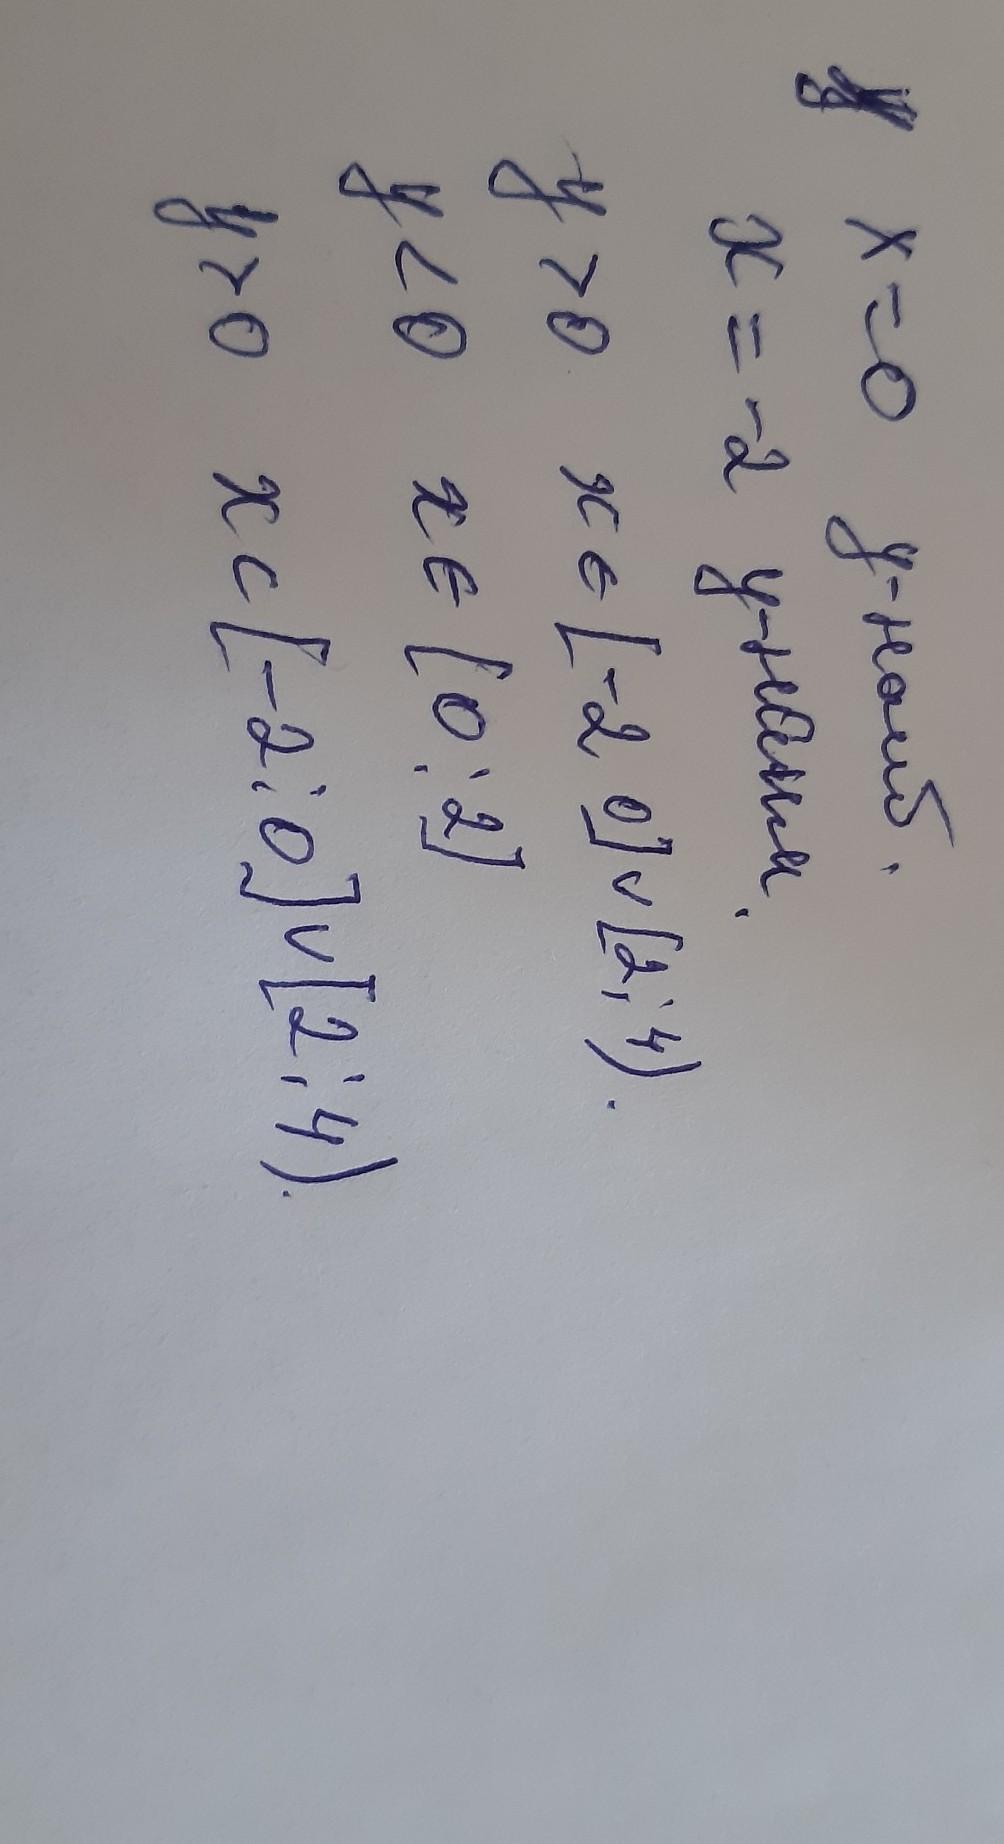 x=0 y-наиб.
x=-2 y-наим.
y>0 x∈[-2 0]∪[2;4).
y<0 x∈[0;2]
y>0 x⊂[-2;0]∪[2;4).